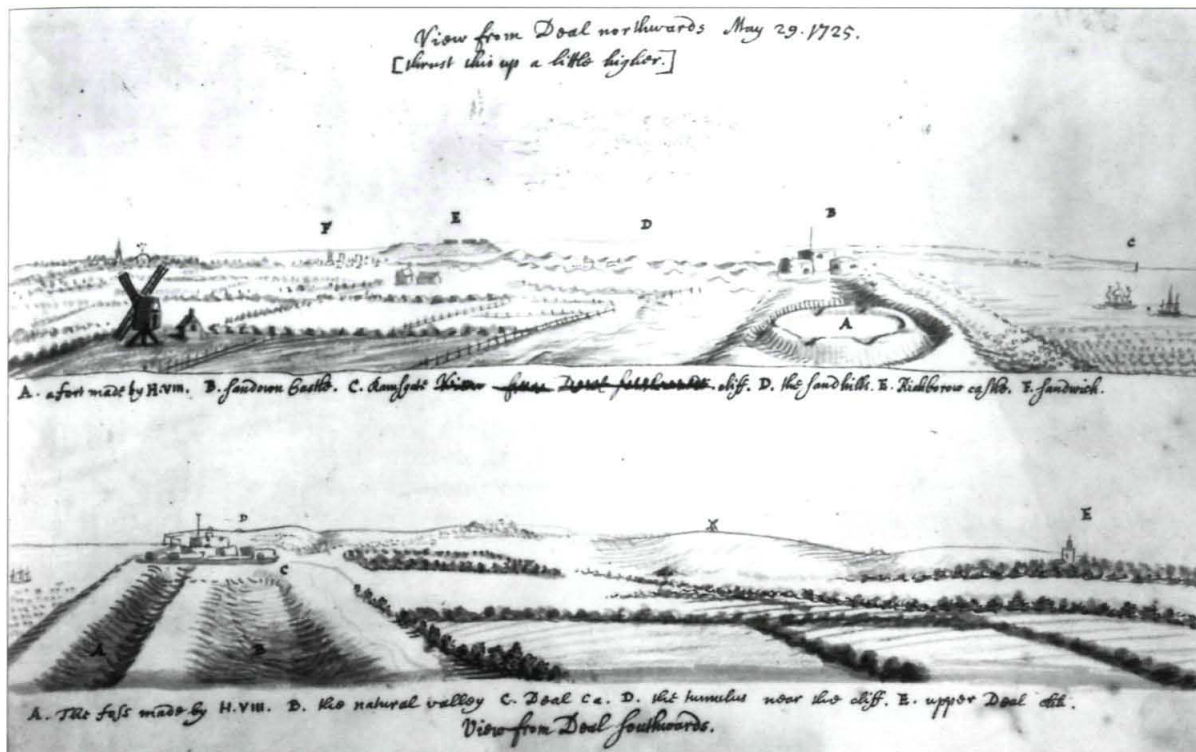 View from Deal northwards May 29. 1725.
[thrust this up a little higher.]
F E D B C
A
A. a fort made by H. VIII. B. Sandown Castle. C. Ramsgate View from Deal southwards cliff. D. the sand hills. E. Richborow castle. F. Sandwich.
D E
C
A B
A. The foss made by H. VIII. B. the natural valley C. Deal Ca. D. the tumulus near the cliff. E. upper Deal
View from Deal Southwards.